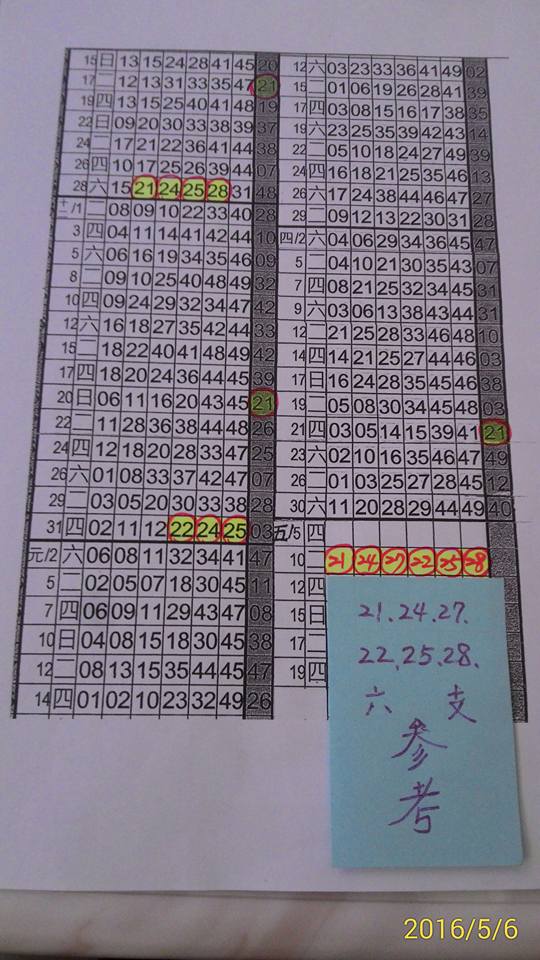 15 日 13 15 24 28 41 45 20
17 二 12 13 31 33 35 47 21
19 四 13 15 25 40 41 48 19
22 日 09 20 30 33 38 39 37
24 二 17 21 22 36 41 44 38
26 四 10 17 25 26 39 44 07
28 六 15 21 24 25 28 31 48
十二/1 二 08 09 10 22 33 40 28
3 四 04 11 14 41 42 44 10
5 六 06 16 19 34 35 46 09
8 二 09 10 25 40 48 49 32
10 四 09 24 29 32 34 47 42
12 六 16 18 27 35 42 44 33
15 二 18 22 40 41 48 49 42
17 四 18 20 24 36 44 45 39
20 日 06 11 16 20 43 45 21
22 二 11 28 36 38 44 48 26
24 四 12 18 20 28 33 47 25
26 六 01 08 33 37 42 47 07
29 二 03 05 20 30 33 38 28
31 四 02 11 12 22 24 25 03
元/2 六 06 08 11 32 34 41 47
5 二 02 05 07 18 30 45 11
7 四 06 09 11 29 43 47 08
10 日 04 08 15 18 30 45 38
12 二 08 13 15 35 44 45 47
14 四 01 02 10 23 32 49 26
12 六 03 23 33 36 41 49 02
15 二 01 06 19 26 28 41 39
17 四 03 08 15 16 17 38 35
19 六 23 25 35 39 42 43 14
22 二 05 10 18 24 27 49 39
24 四 16 18 21 25 35 46 13
26 六 17 24 38 44 46 47 27
29 二 09 12 13 22 30 31 28
四/2 六 04 06 29 34 36 45 47
5 二 04 10 21 30 35 43 07
7 四 08 21 25 32 34 45 31
9 六 03 06 13 38 43 44 31
12 二 21 25 28 33 46 48 10
14 四 14 21 25 27 44 46 03
17 日 16 24 28 35 45 46 38
19 二 05 08 30 34 45 48 03
21 四 03 05 14 15 39 41 21
23 六 02 10 16 35 46 47 49
26 二 01 03 25 27 28 45 12
30 六 11 20 28 29 44 49 40
五/5 四
10 二 21 24 27 22 25 28
12 四
15 日
17 二
19 四
21.24.27.
22.25.28.
六 支
參
考
2016/5/6